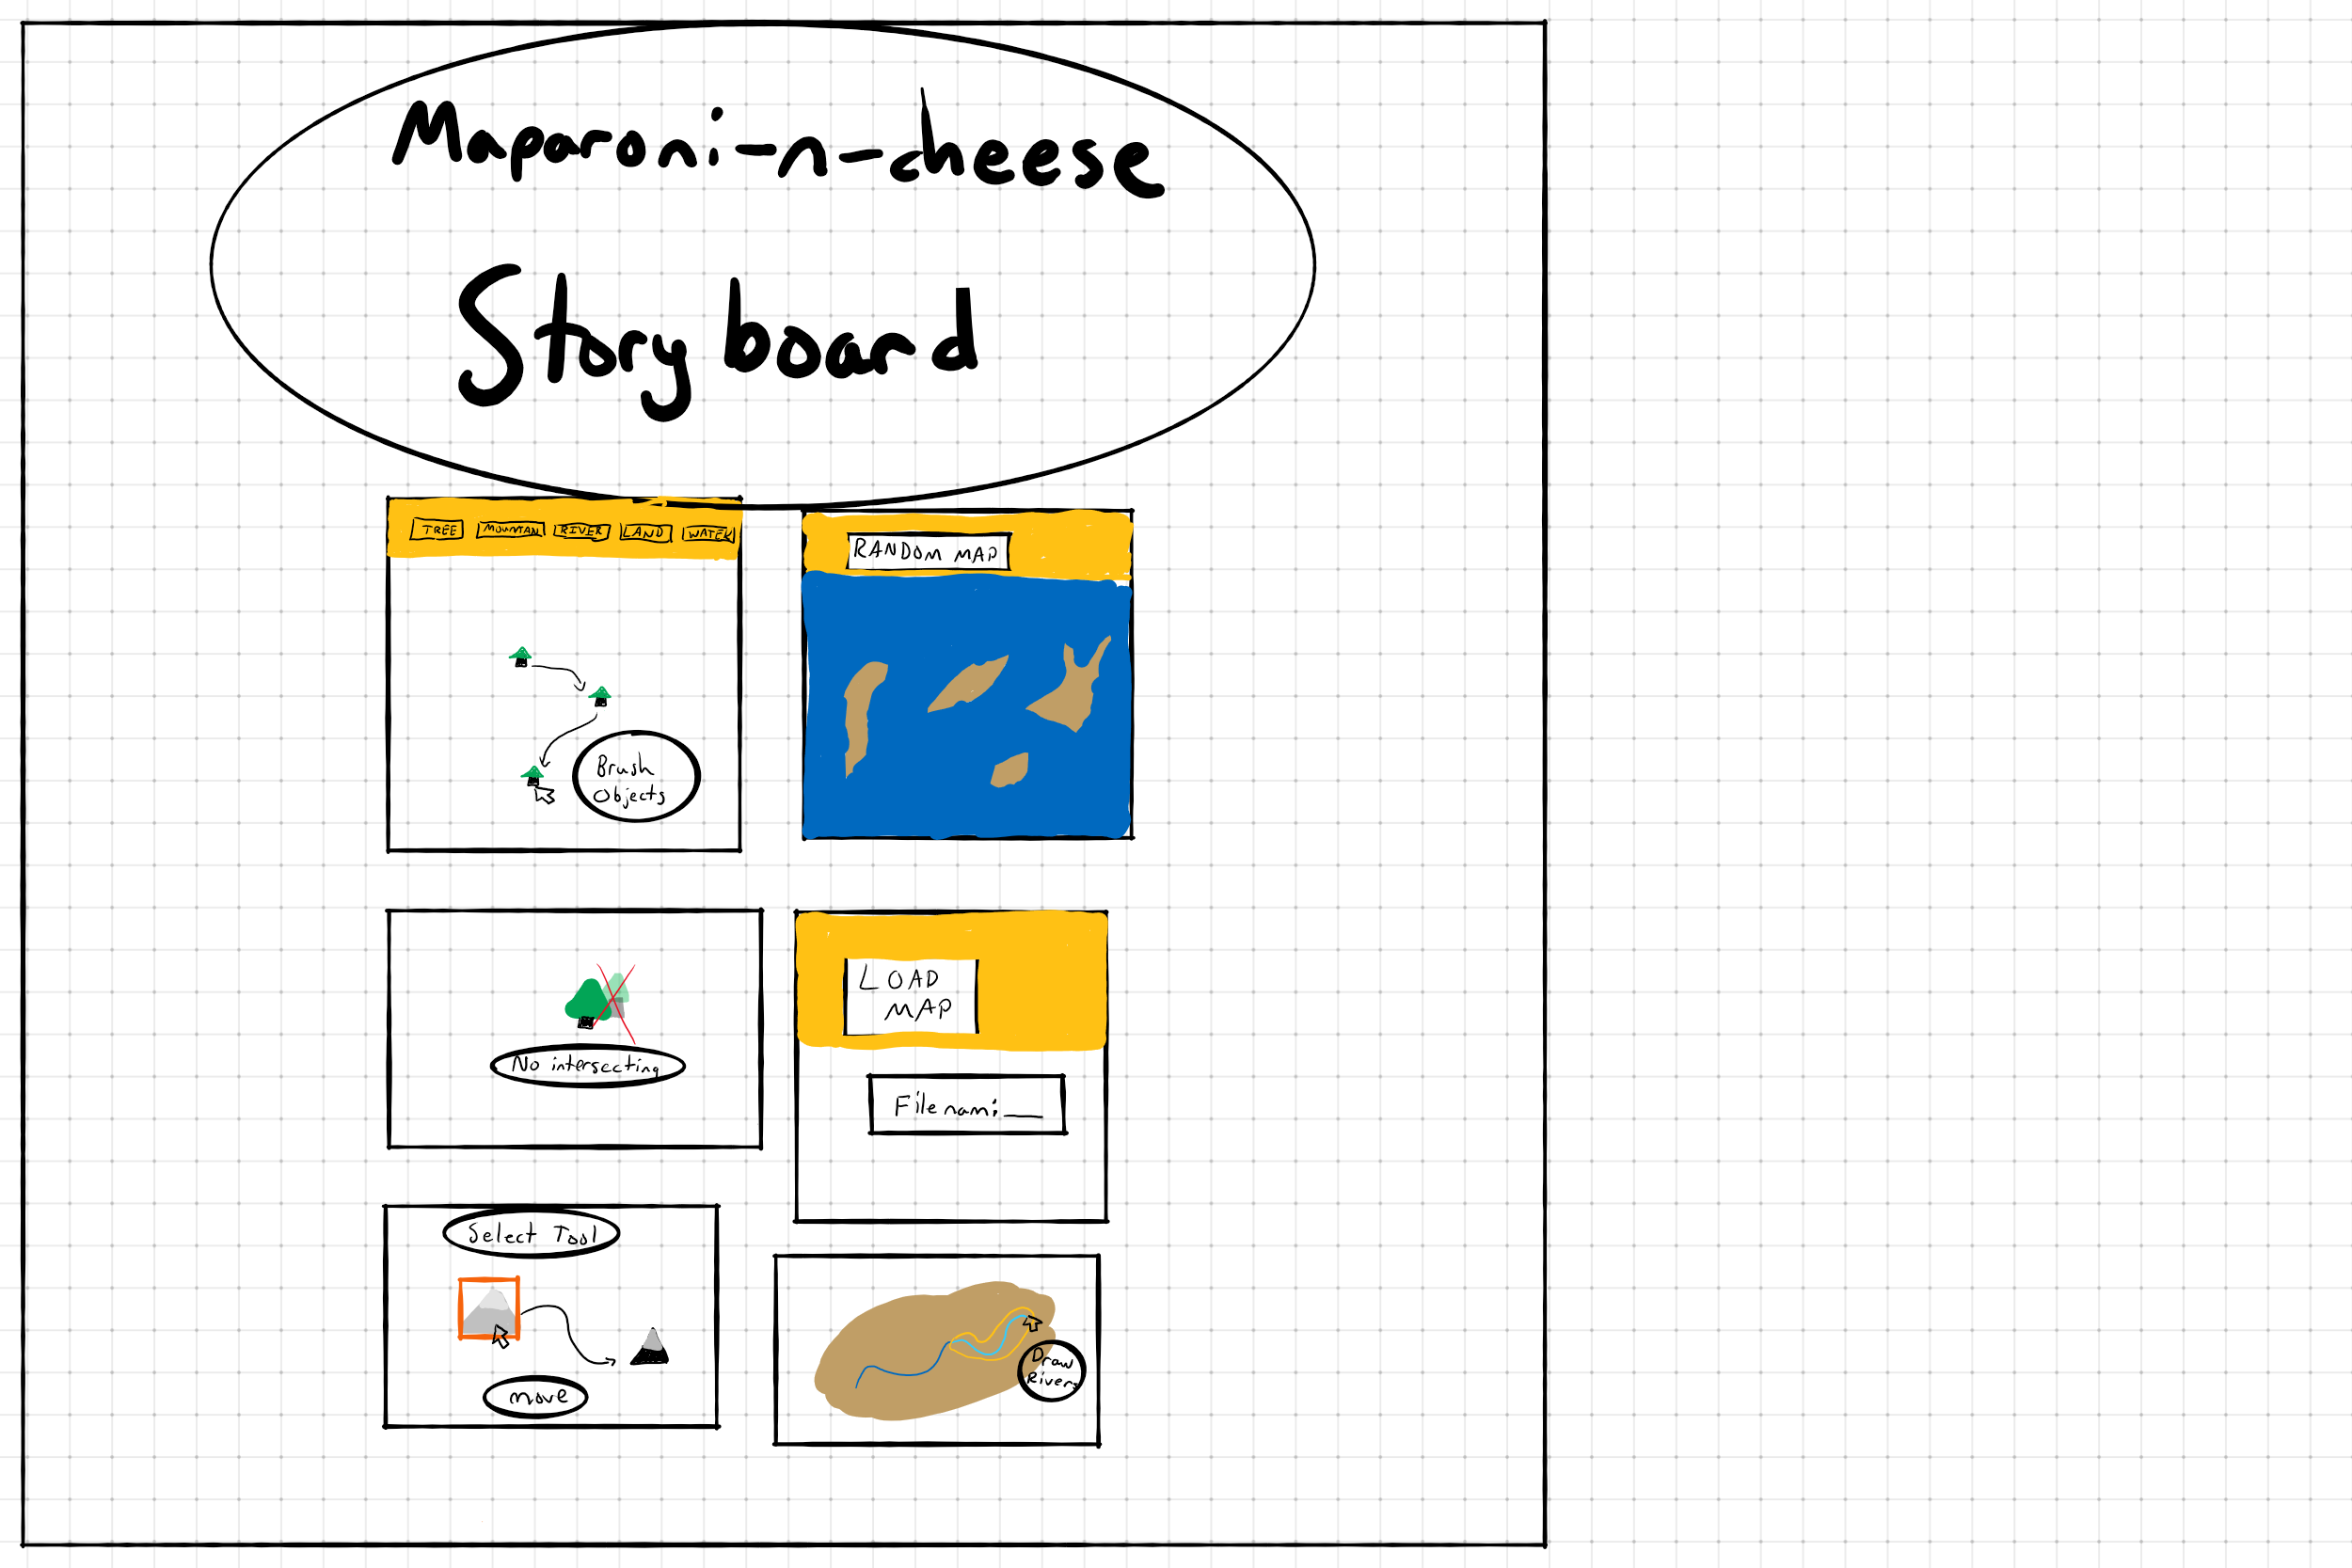 Maparoni-n-cheese
Storyboard
TREE MOUNTAIN RIVER LAND WATER
Brush
Objects
RANDOM MAP
No intersecting
LOAD
MAP
Filenam: ___
Select Tool
move
Draw
Rivers